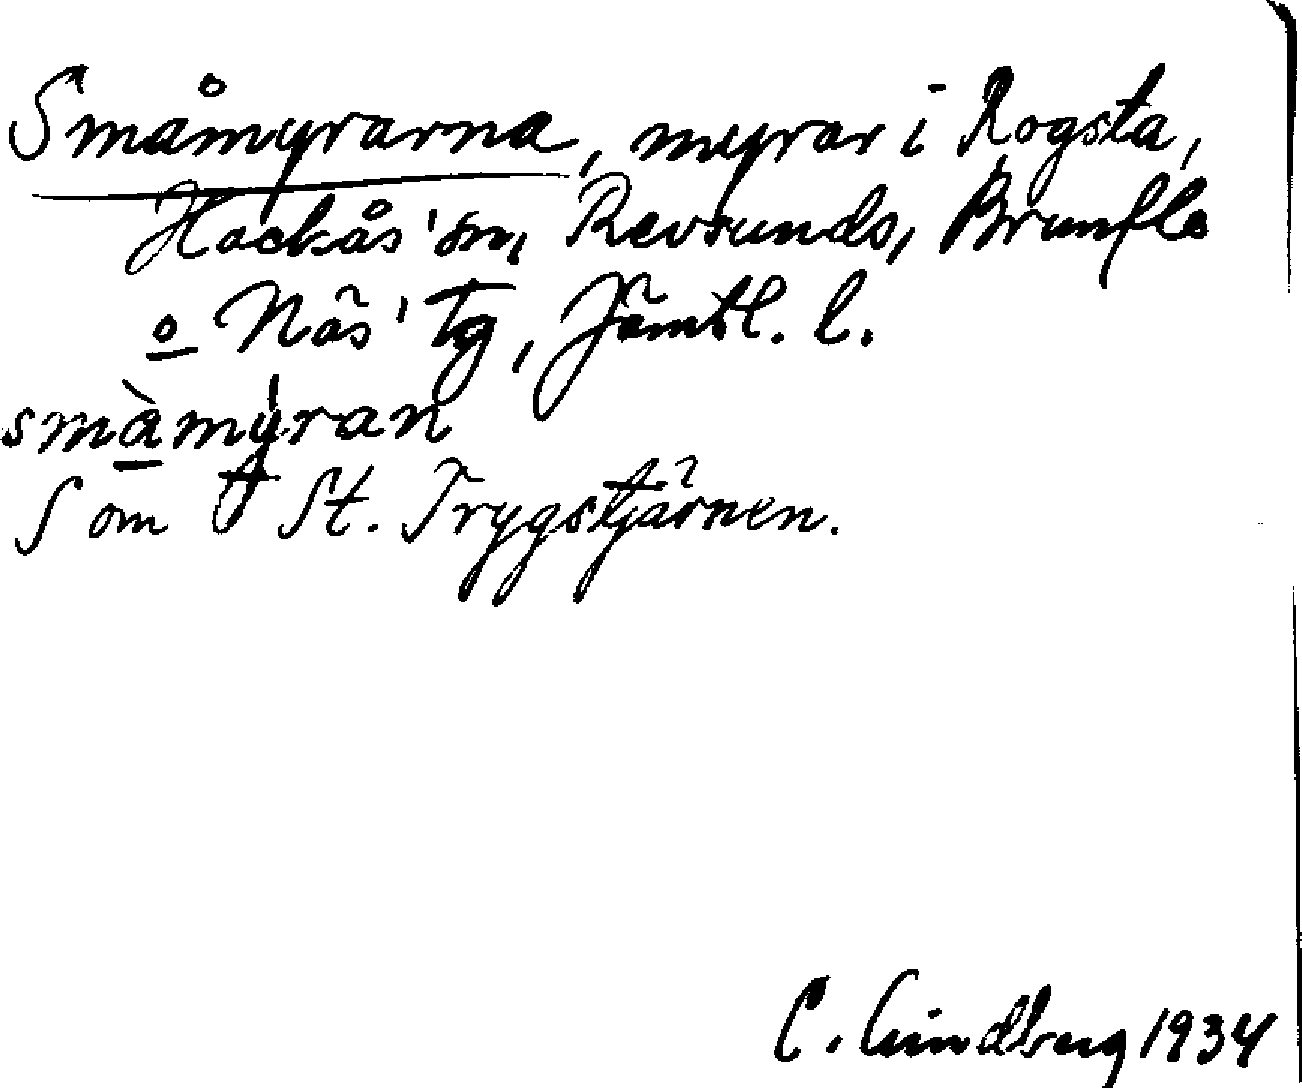 Småmyrarna, myrar i Rogsta,
Hackås' sn, Revsunds, Brunflo
o Näs' tg, Jämtl. l.
smàmy̍ran
S om St. Trygstjärnen.
C. Lindberg 1934